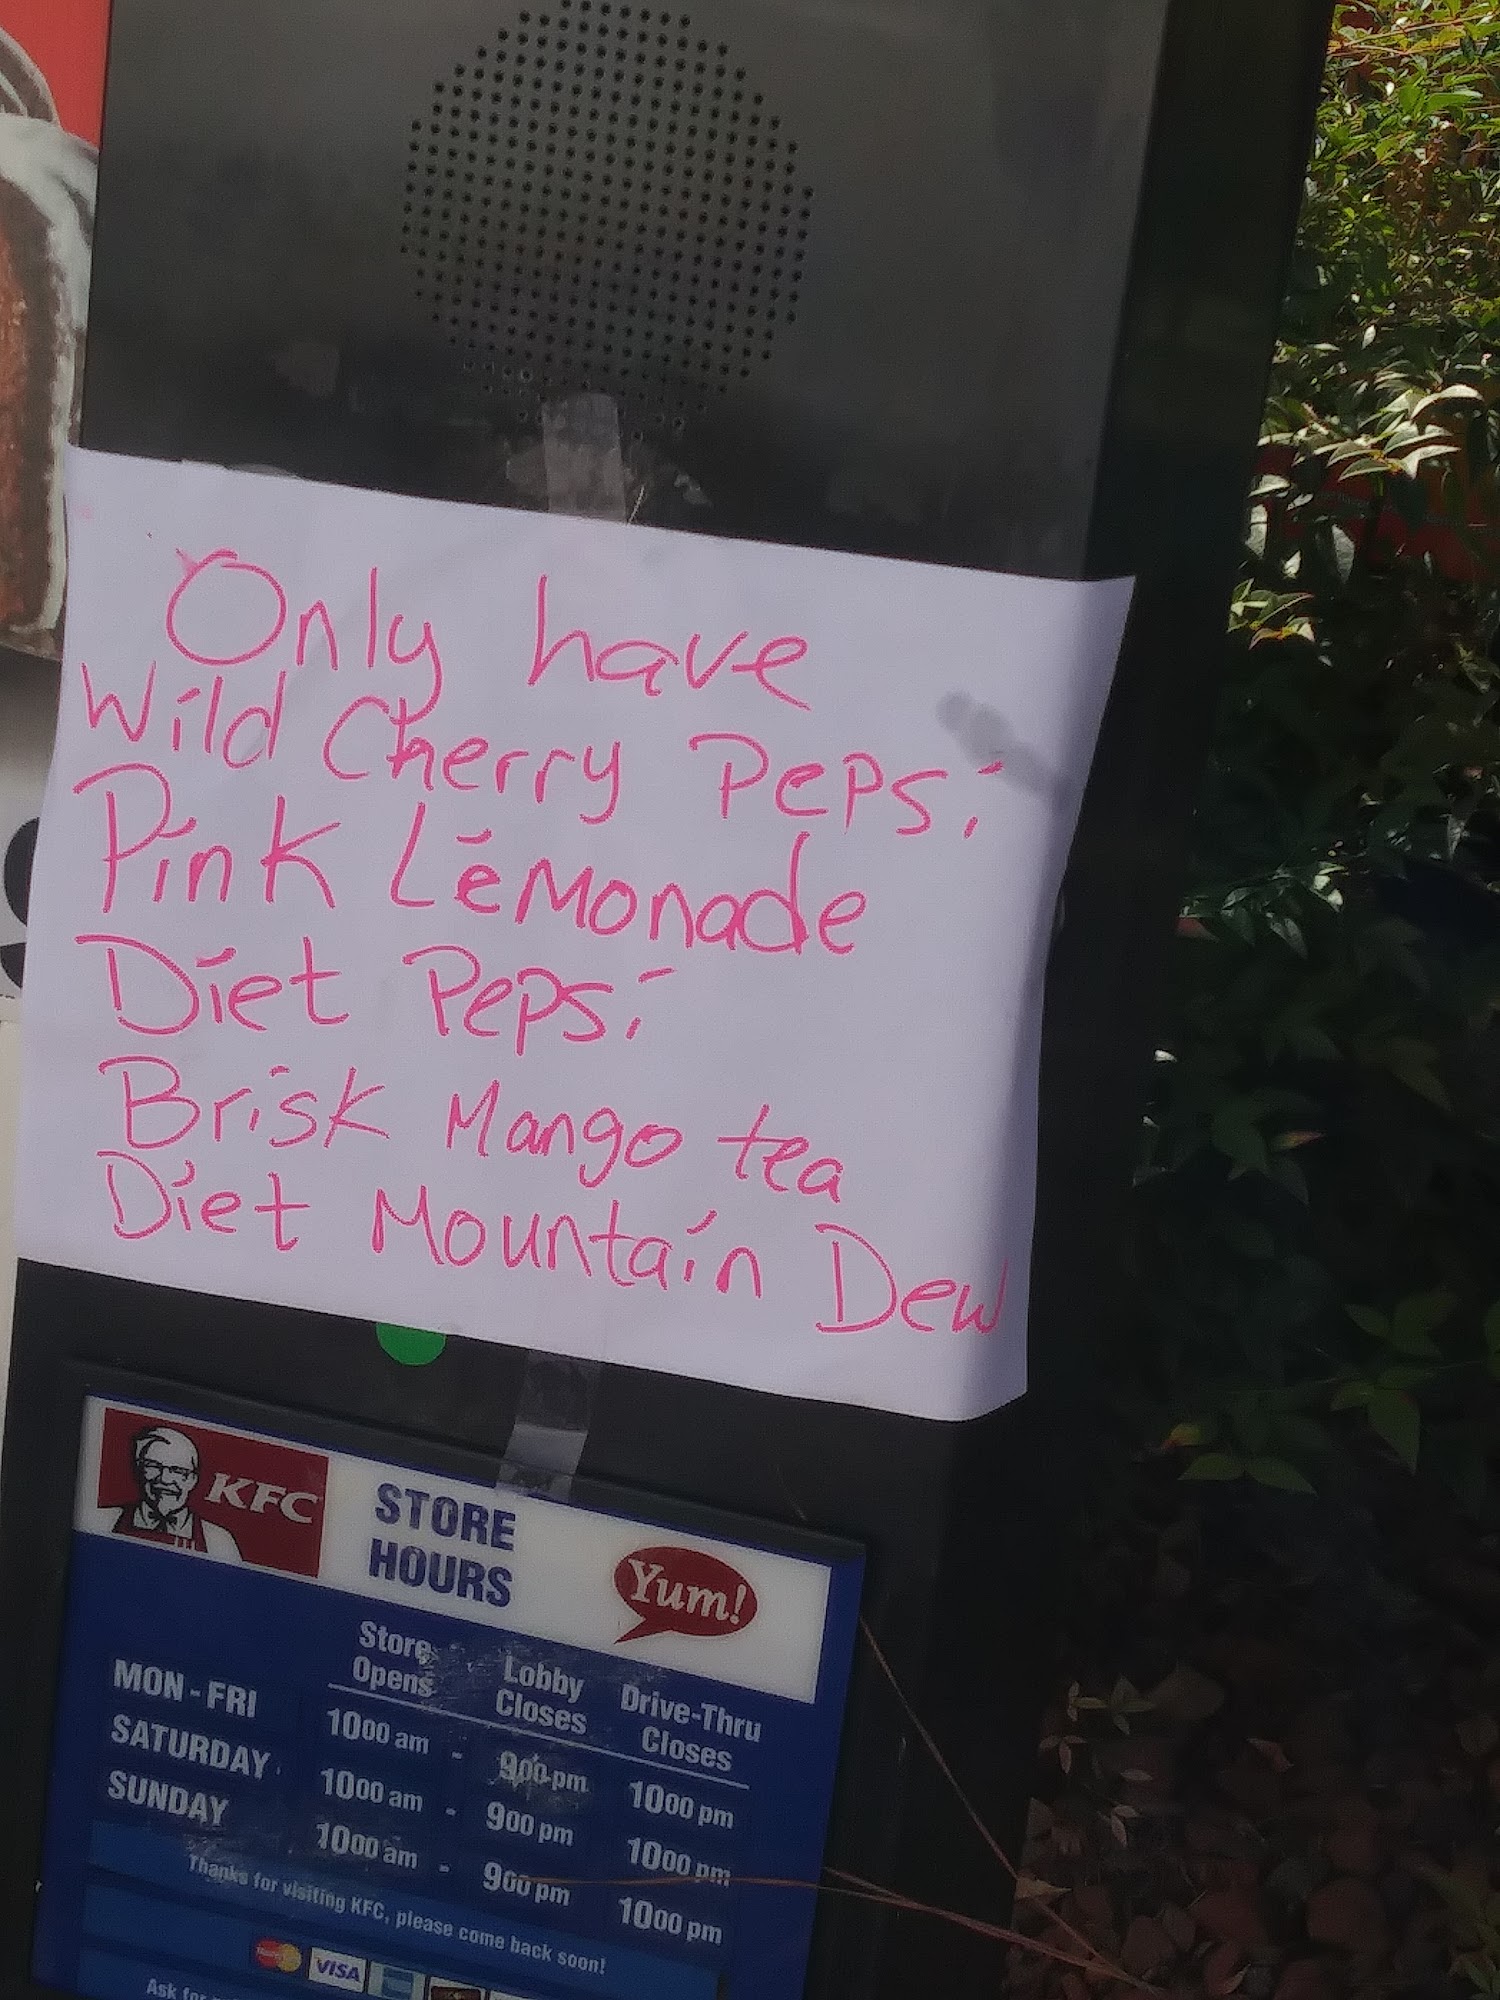 Only have
Wild Cherry Pepsi
Pink Lemonade
Diet Pepsi
Brisk Mango tea
Diet Mountain Dew
KFC
STORE
HOURS
Yum!
Store Opens Lobby Closes Drive-Thru Closes
MON - FRI 1000 am - 900 pm 1000 pm
SATURDAY 1000 am - 900 pm 1000 pm
SUNDAY 1000 am - 900 pm 1000 pm
Thanks for visiting KFC, please come back soon!
VISA
Ask for